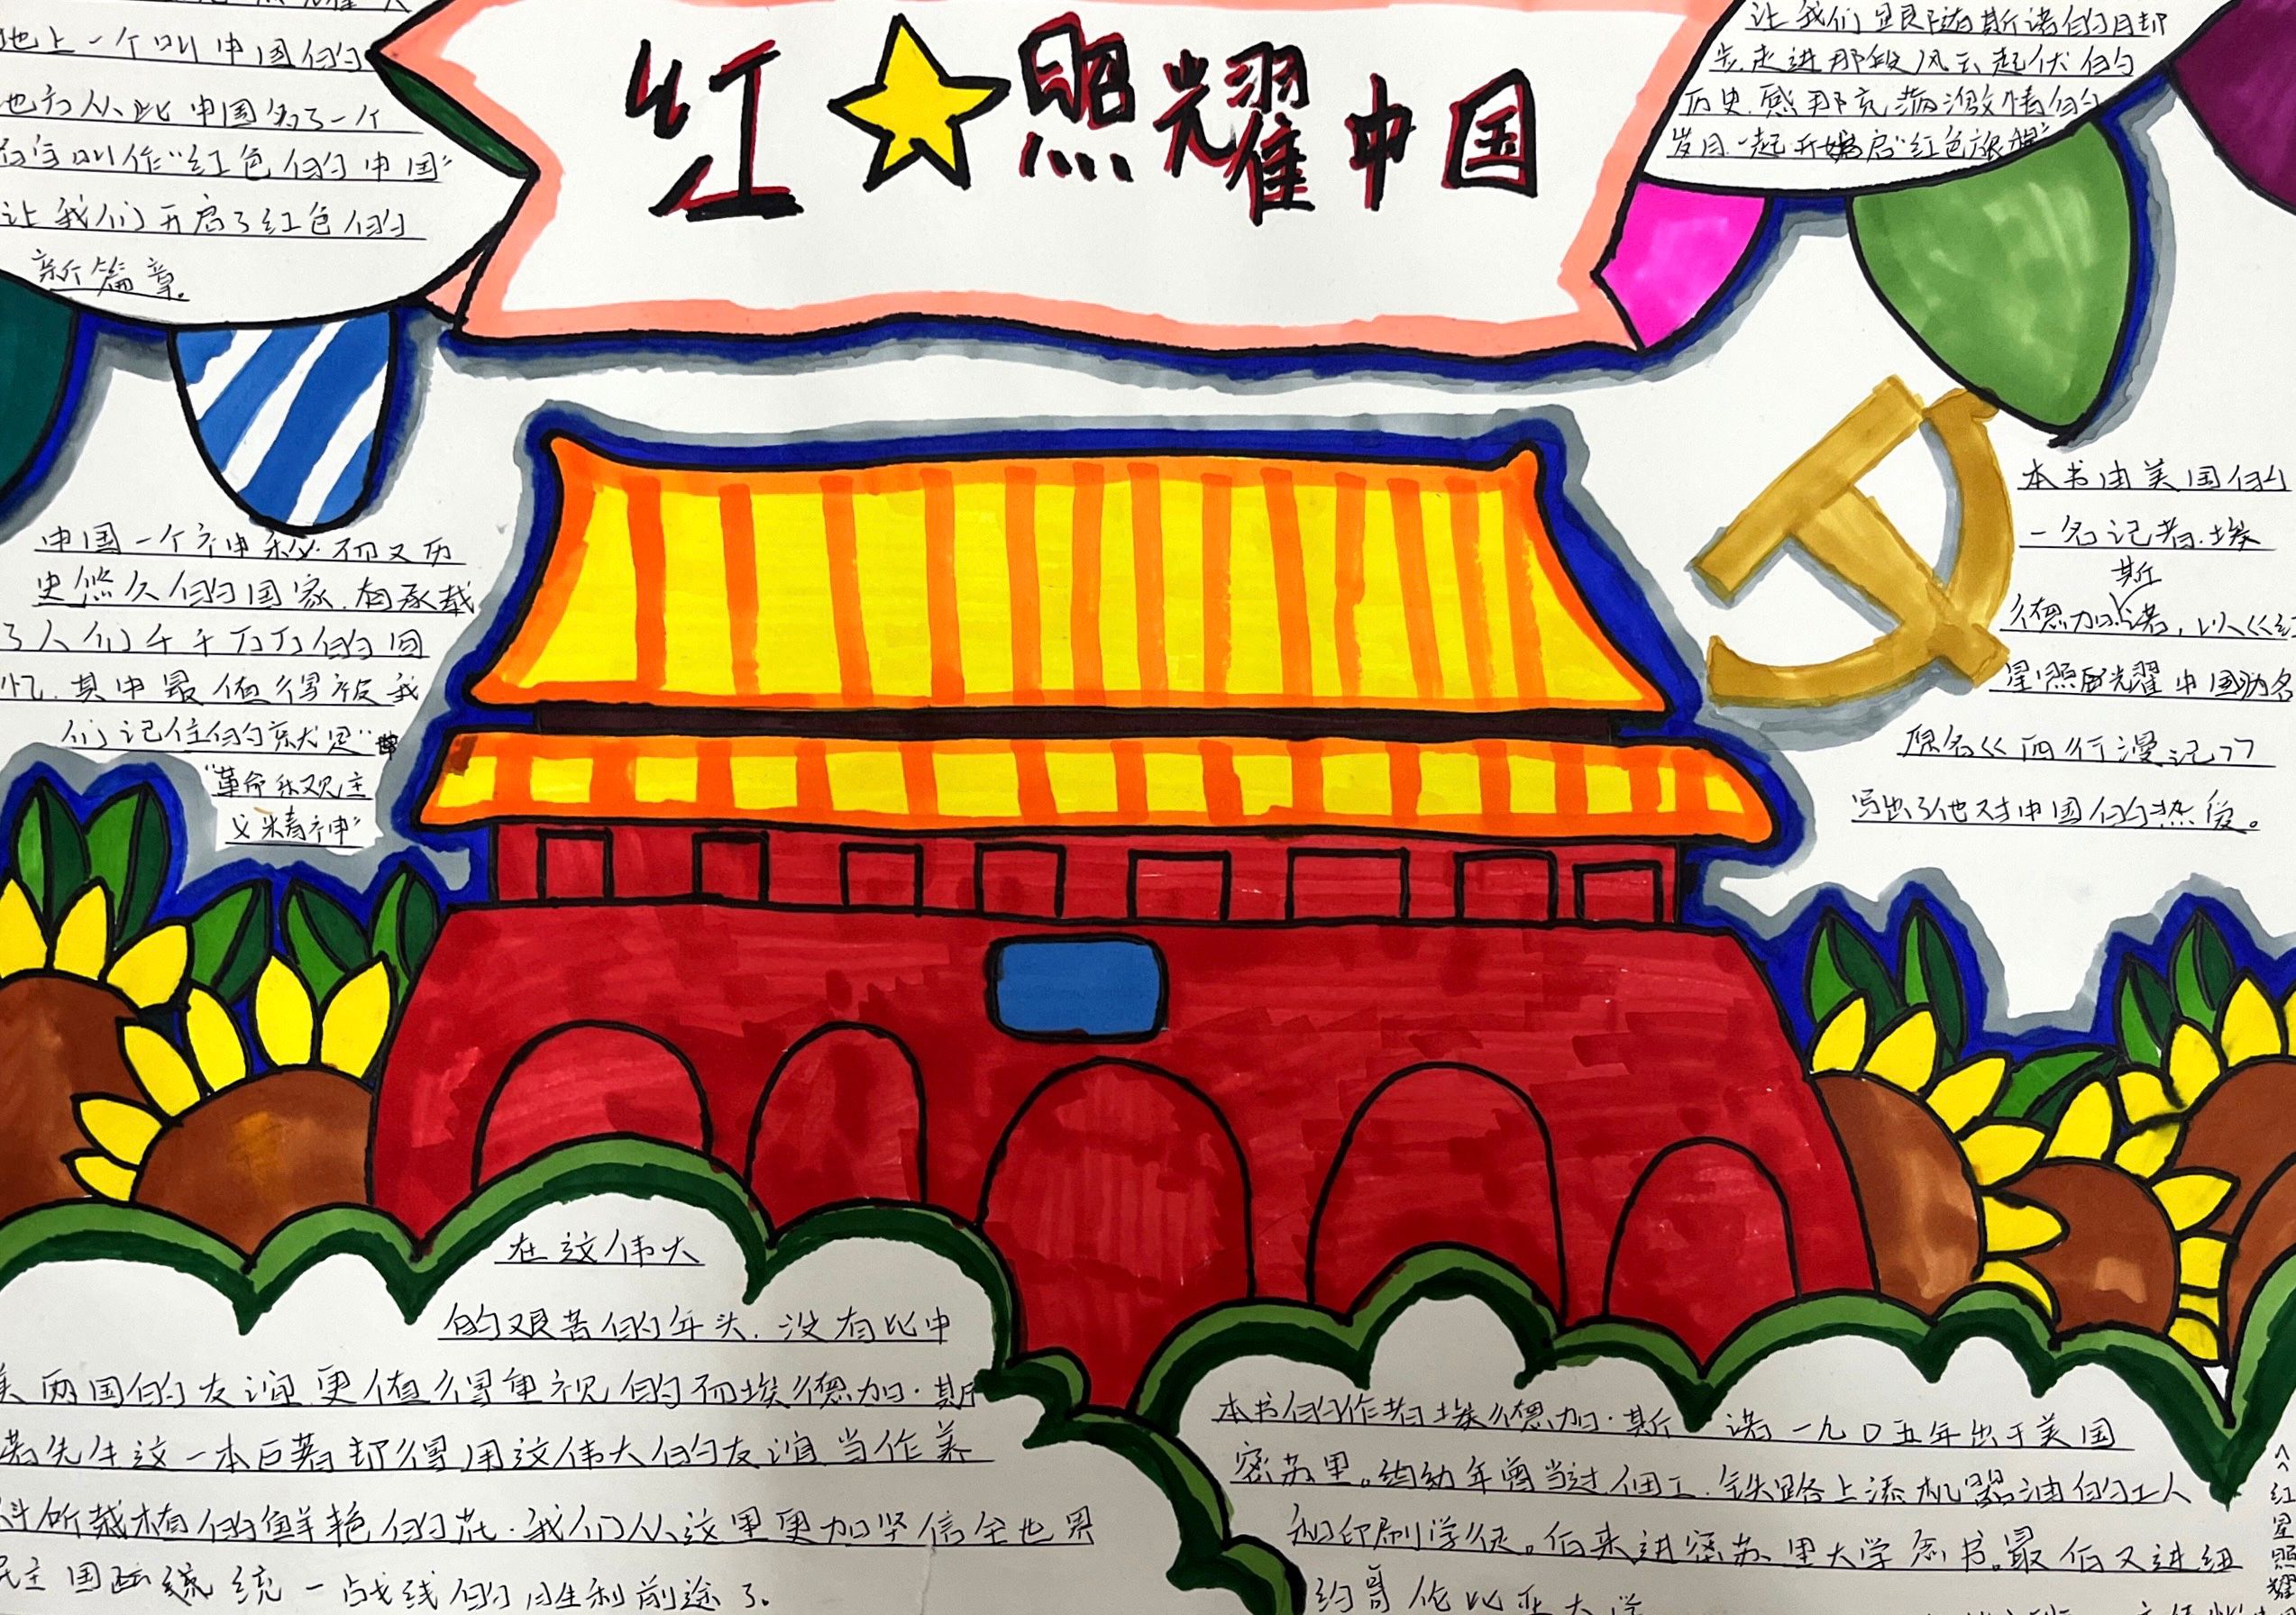 红★照耀中国
地上一个叫中国的
地方从此中国多了一个
名字叫作“红色的中国”
让我们开启了红色的
新篇章。
让我们跟随斯诺的日却
步.走进那段风云起伏的
历史.感那充满激情的
岁月.一起开启“红色旅程”
中国一个神秘而又历
史悠久的国家.有承载
了人们千千万万的回
忆.其中最值得被我
们记住的就是“
“革命乐观主
义精神”
本书由美国的
一名记者.埃
德加斯诺,以《红
星照耀中国》为名
原名《西行漫记》
写出了他对中国的热爱。
在这伟大
的艰苦的年头.没有比中
美两国的友谊更值得重视的而埃德加·斯
诺先生这一本巨著却得用这伟大的友谊当作养
料所栽植的鲜艳的花.我们从这里更加坚信全世界
民主国 统一战线的胜利前途了.
本书的作者埃德加·斯诺一九〇五年出于美国
密苏里。幼年曾当过佃工.铁路上添机器油的工人
和印刷学徒。后来进密苏里大学念书。最后又进纽
约哥伦比亚大学
《红星照耀